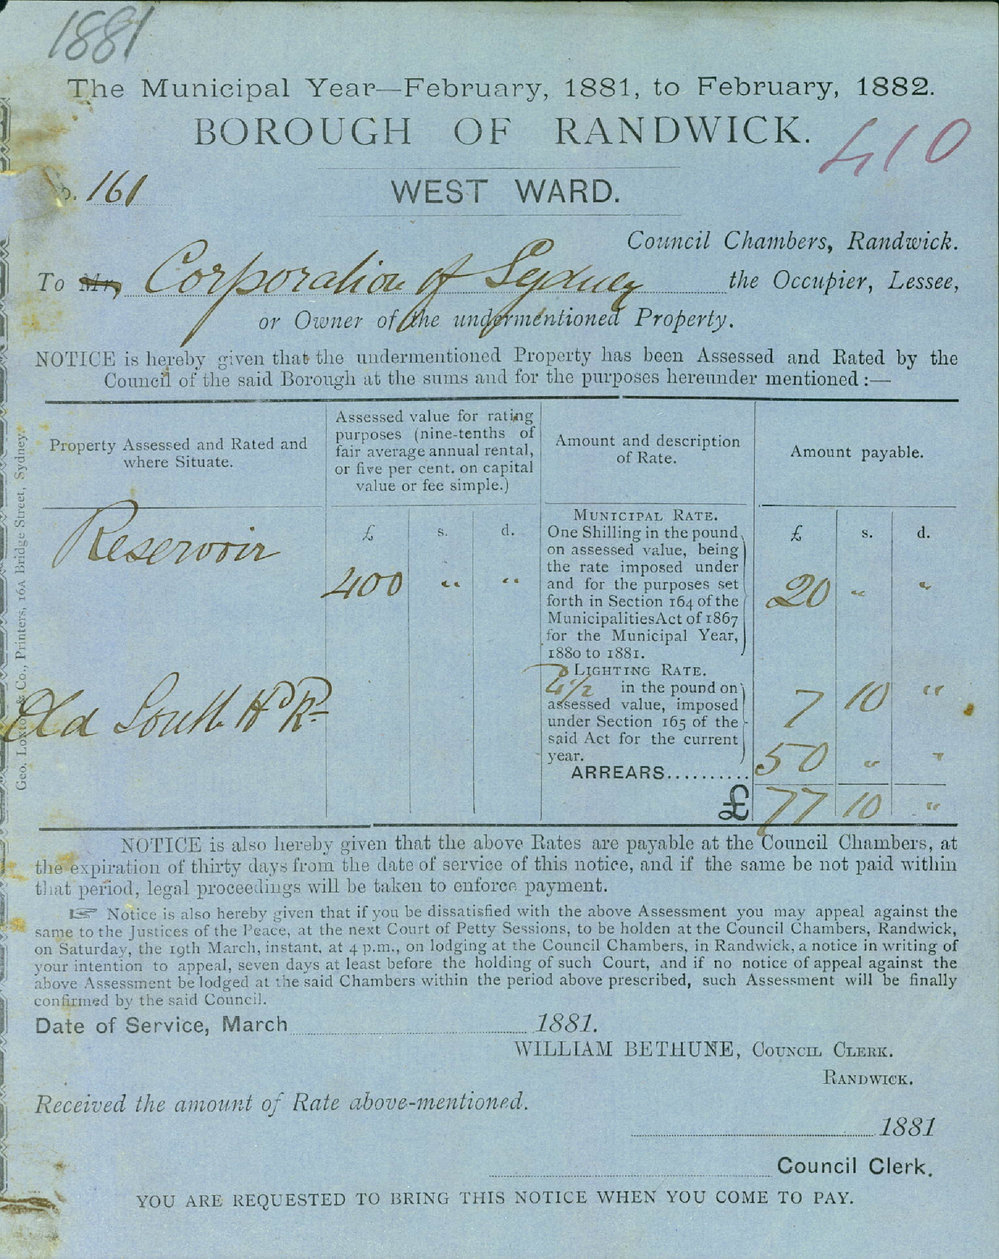 1881
The Municipal Year—February, 1881, to February, 1882.
BOROUGH OF RANDWICK.
410
161
WEST WARD.
Council Chambers, Randwick.
To Mr, Corporation of Sydney the Occupier, Lessee,
or Owner of the undermentioned Property.
NOTICE is hereby given that the undermentioned Property has been Assessed and Rated by the
Council of the said Borough at the sums and for the purposes hereunder mentioned :—
Property Assessed and Rated and
where Situate.
Assessed value for rating
purposes (nine-tenths of
fair average annual rental,
or five per cent. on capital
value or fee simple.)
Amount and description
of Rate.
Amount payable.
Reservoir
£ s. d.
400 " "
MUNICIPAL RATE.
One Shilling in the pound
on assessed value, being
the rate imposed under
and for the purposes set
forth in Section 164 of the
Municipalities Act of 1867
for the Municipal Year,
1880 to 1881.
£ s. d.
20 " "
Old South Hd Rd
LIGHTING RATE.
4½ in the pound on
assessed value, imposed
under Section 165 of the
said Act for the current
year.
7 10 "
ARREARS.......... 50 " "
£ 77 10 "
Geo. Loxton & Co., Printers, 16A Bridge Street, Sydney.
NOTICE is also hereby given that the above Rates are payable at the Council Chambers, at
the expiration of thirty days from the date of service of this notice, and if the same be not paid within
that period, legal proceedings will be taken to enforce payment.
☞ Notice is also hereby given that if you be dissatisfied with the above Assessment you may appeal against the
same to the Justices of the Peace, at the next Court of Petty Sessions, to be holden at the Council Chambers, Randwick,
on Saturday, the 19th March, instant, at 4 p.m., on lodging at the Council Chambers, in Randwick, a notice in writing of
your intention to appeal, seven days at least before the holding of such Court, and if no notice of appeal against the
above Assessment be lodged at the said Chambers within the period above prescribed, such Assessment will be finally
confirmed by the said Council.
Date of Service, March 1881.
WILLIAM BETHUNE, COUNCIL CLERK.
RANDWICK.
Received the amount of Rate above-mentioned.
1881
Council Clerk.
YOU ARE REQUESTED TO BRING THIS NOTICE WHEN YOU COME TO PAY.